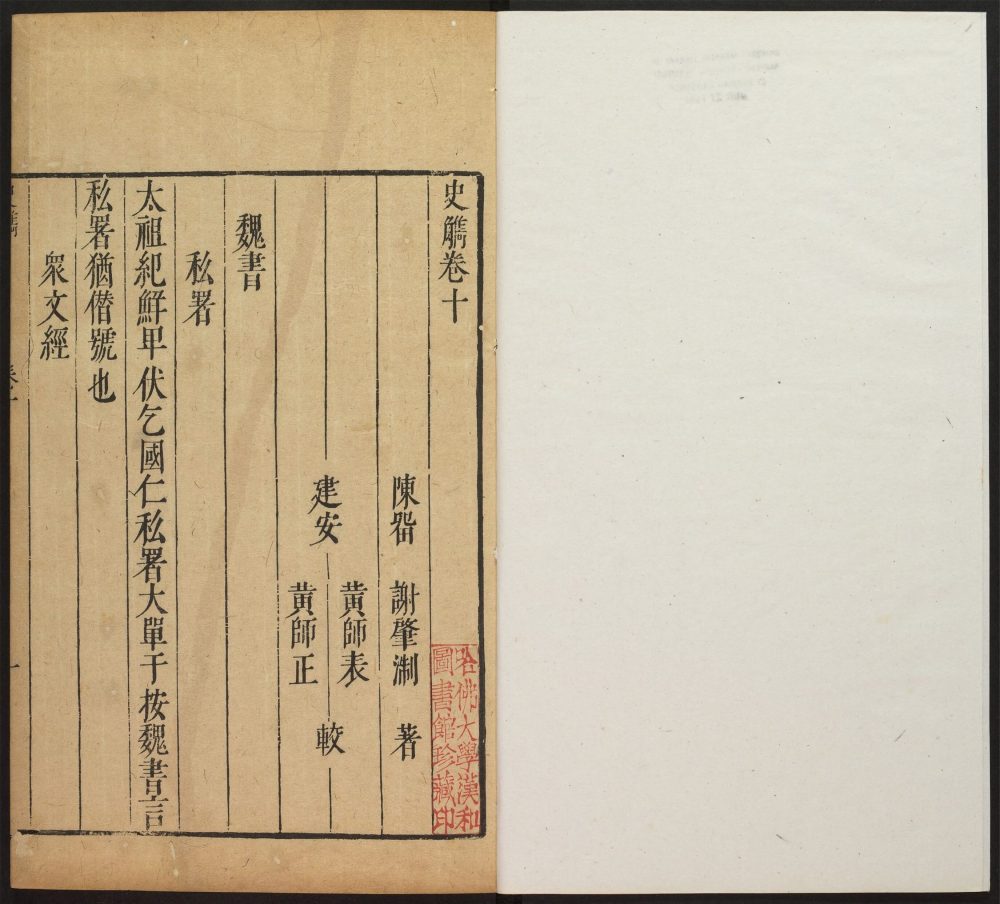 史觿卷十
陳畱 謝肇淛 著
建安 黃師表 較
黃師正
魏書
私署
太祖紀鮮卑伏乞國仁私署大單于按魏書言
私署猶僭號也
眾文經
哈佛大學漢和
圖書館珍藏印